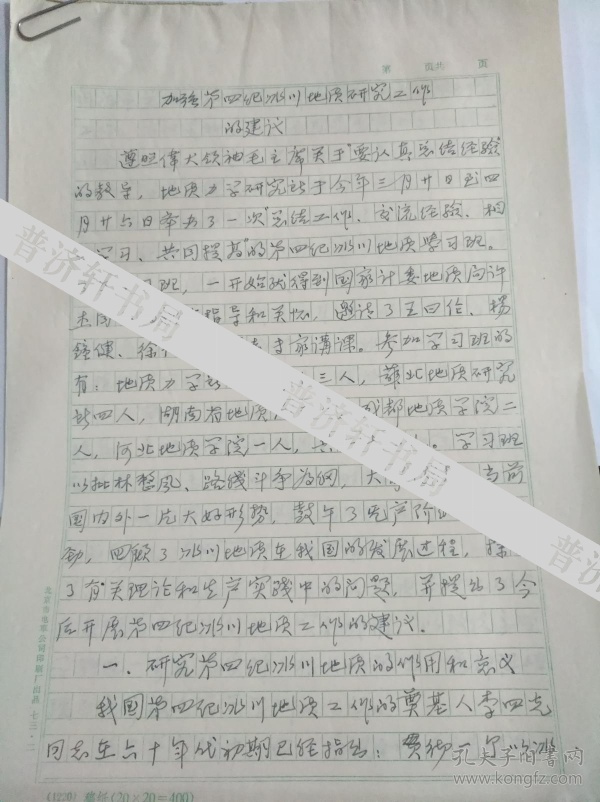 第 页共 页
加强第四纪冰川地质研究工作
的建议
遵照伟大领袖毛主席关于“要认真总结经验”
的教导，地质力学研究所于今年三月廿日至四
月廿六日举办了一次“总结工作、交流经验、相
学习、共同提高”的第四纪冰川地质学习班。
班，一开始就得到国家计委地质局许
指导和关怀，邀请了王四伦、杨
钟健、徐 专家讲课。参加学习班的
有：地质力学 三人，华北地质研究
所四人，湖南省地质 成都地质学院二
人，河北地质学院一人，共 。学习班
以批林整风、路线斗争为纲，大 当前
国内外一片大好形势，鼓午了无产阶
劲，回顾了冰川地质在我国的发展过程，探
了有关理论和生产实践中的问题，并提出了今
后开展第四纪冰川地质工作的建议。
一、研究第四纪冰川地质的作用和意义
我国第四纪冰川地质工作的奠基人李四光
同志在六十年代初期已经指出：贯彻
北京市电车公司印刷厂出品 七三·二
(1220) 稿纸(20×20=400)
普济轩书局
普济轩书局
普济
孔夫子旧书网
www.kongfz.com